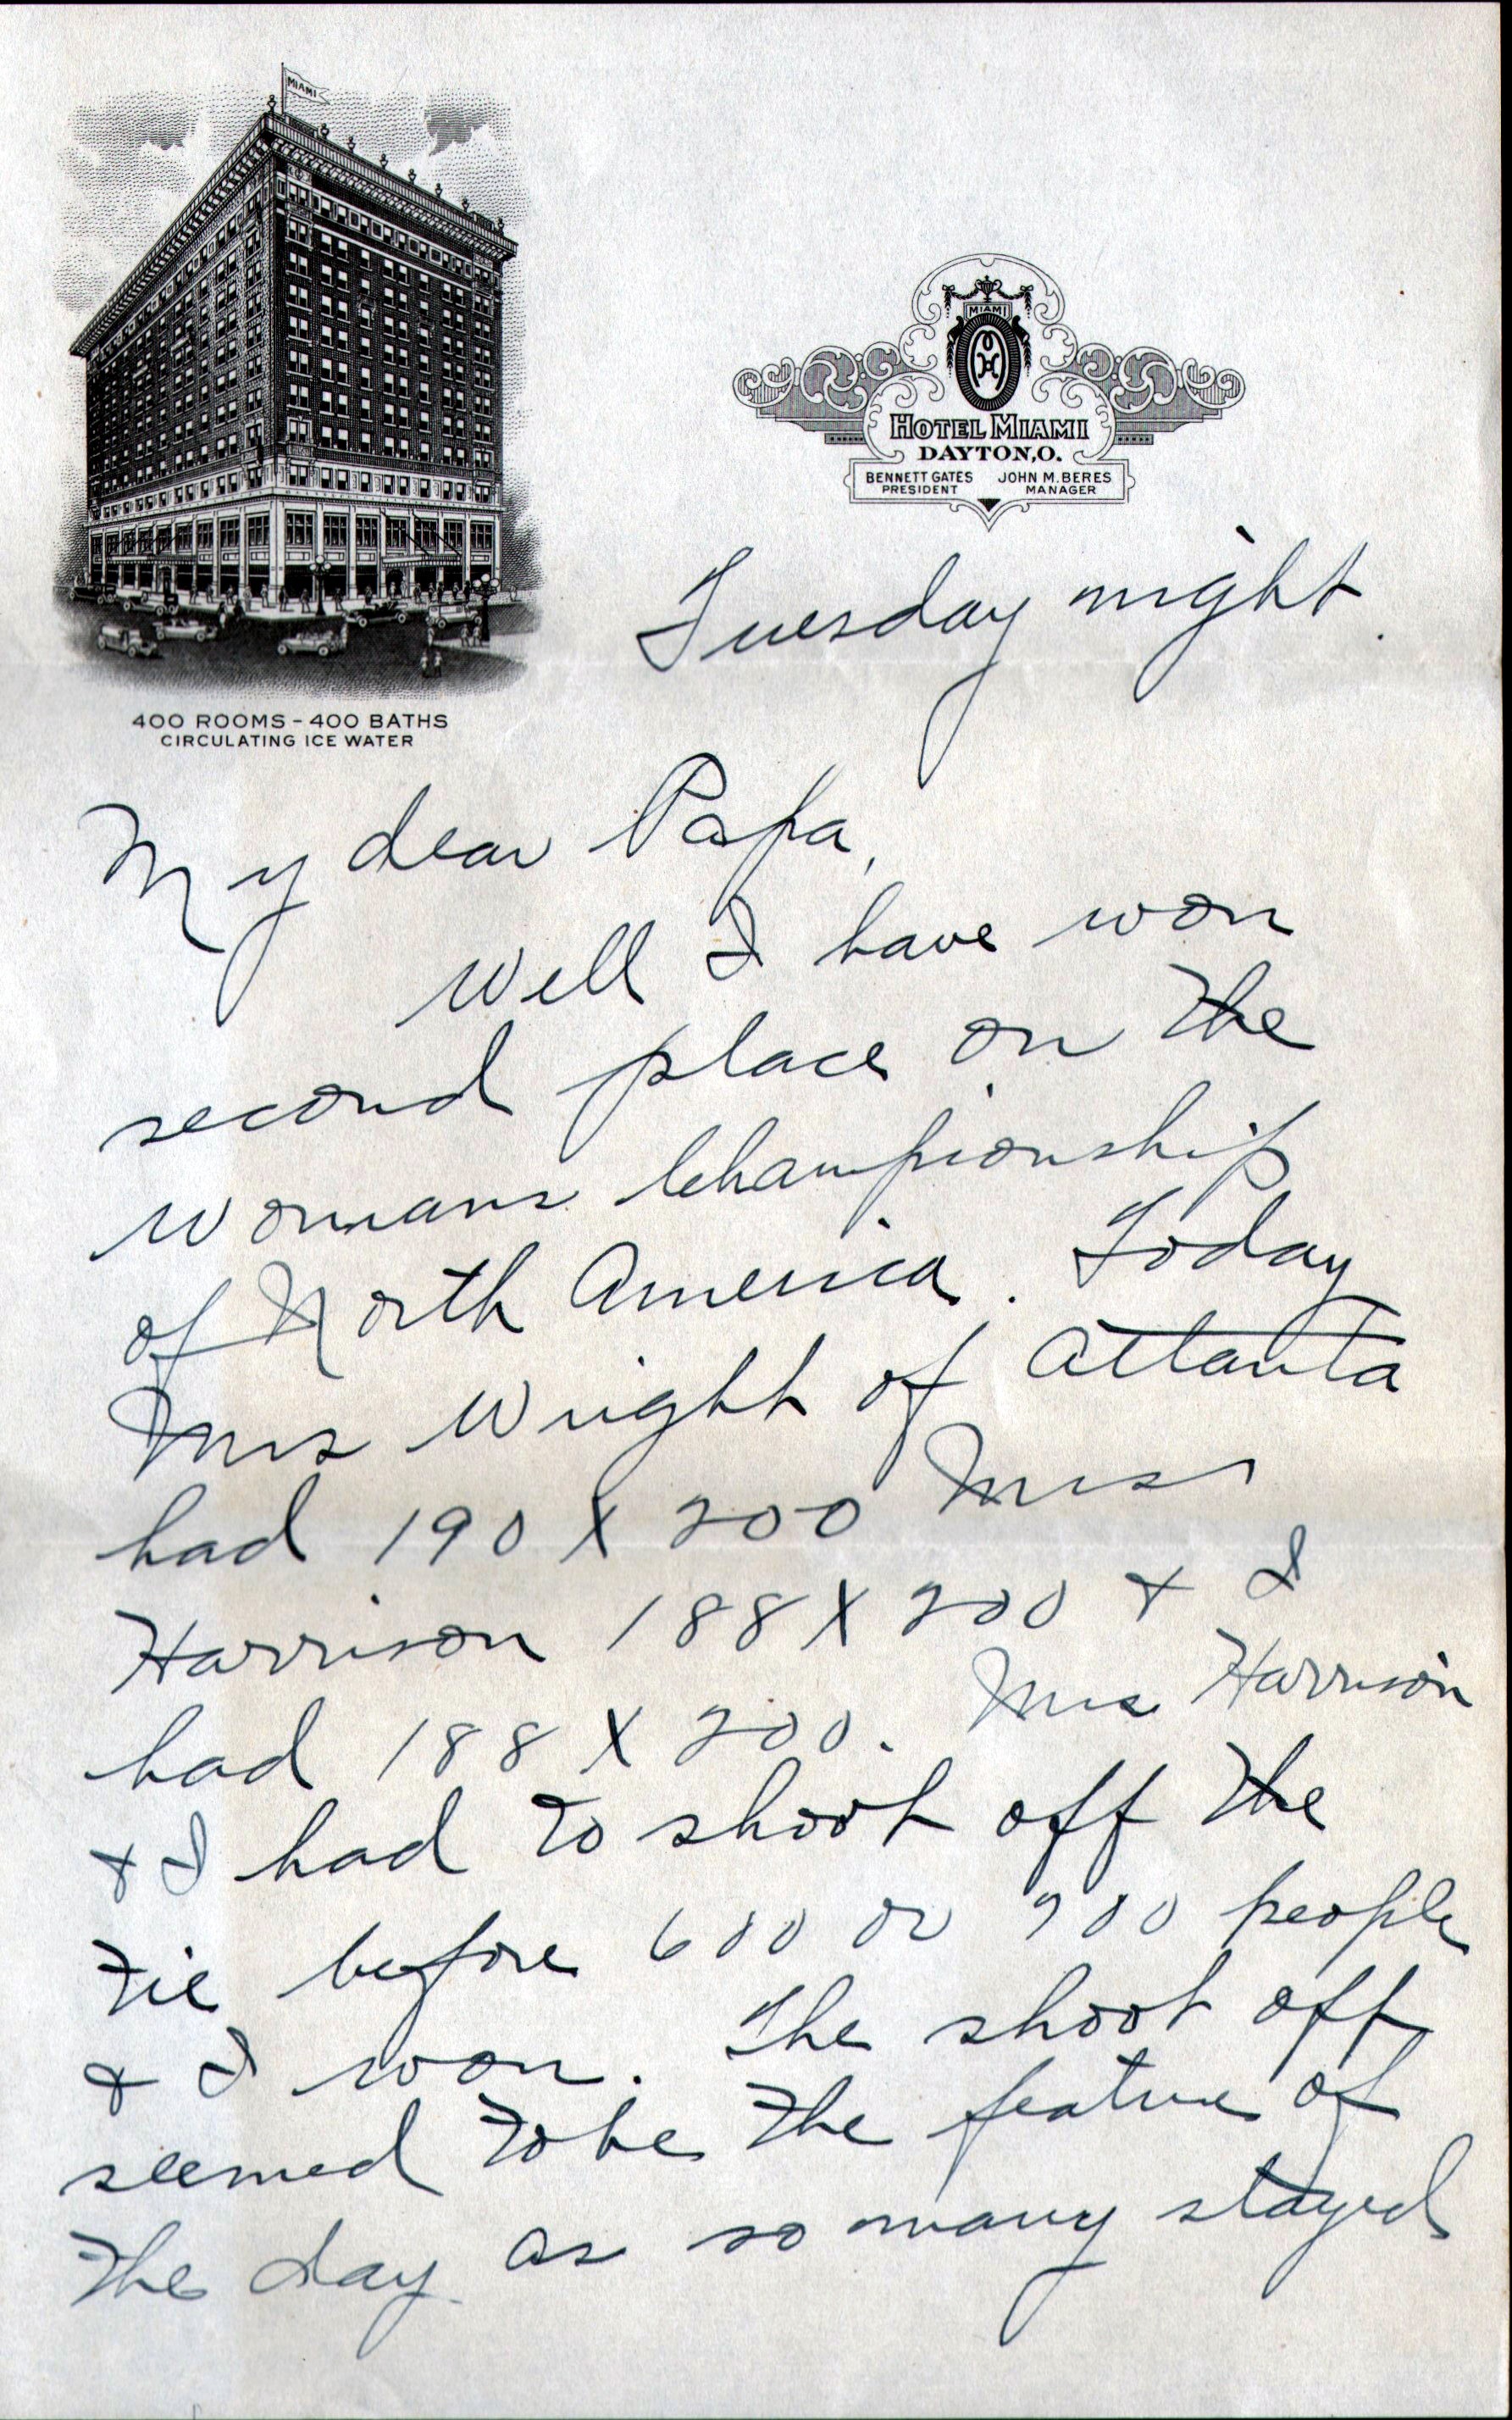 MIAMI
MIAMI
HOTEL MIAMI
DAYTON, O.
BENNETT GATES JOHN M. BERES
PRESIDENT MANAGER
400 ROOMS - 400 BATHS
CIRCULATING ICE WATER
Tuesday night.
My dear Papa,
Well I have won
second place on the
womans Championship
of North America. Today
Mrs Wright of Atlanta
had 190 X 200 Mrs
Harrison 188 X 200 + I
had 188 X 200. Mrs Harrison
+ I had to shoot off the
tie before 600 or 700 people
+ I won. The shoot off
seemed to be the feature of
the day as so many stayed